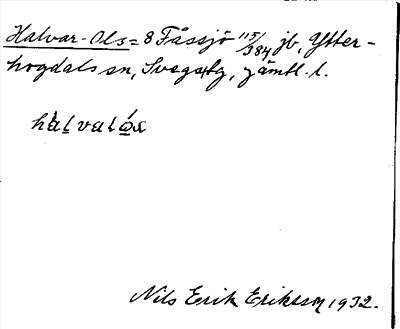 Halvar-Ols = 8 Fåssjö 115/384 jb, Ytter-
hogdals sn, Svegs tg, Jämtl. l.
hàlvalós
Nils Erik Eriksson 1932.